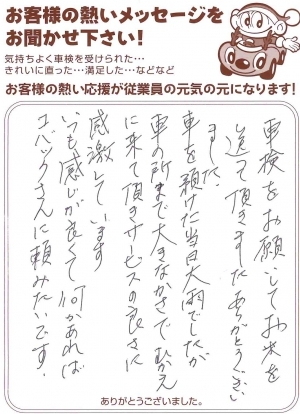 お客様の熱いメッセージを
お聞かせ下さい！
気持ちよく車検を受けられた…
きれいに直った…満足した…などなど
お客様の熱い応援が従業員の元気の元になります！
車検をお願いしてお米を
送って頂きましたありがとうござい
ました.
車を預けた当日大雨でしたが
車の所まで大きなかさでむかえ
に来て頂きサービスの良さに
感激しています
いつも感じが良くて何かあれば
エバックさんに頼みたいです.
ありがとうございました。